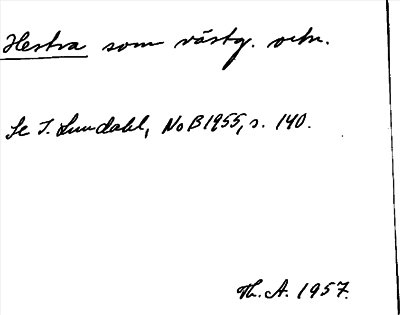 Hestra som västg. ortn.
Se I. Lundahl, NoB 1955, s. 140.
Th. A. 1957.